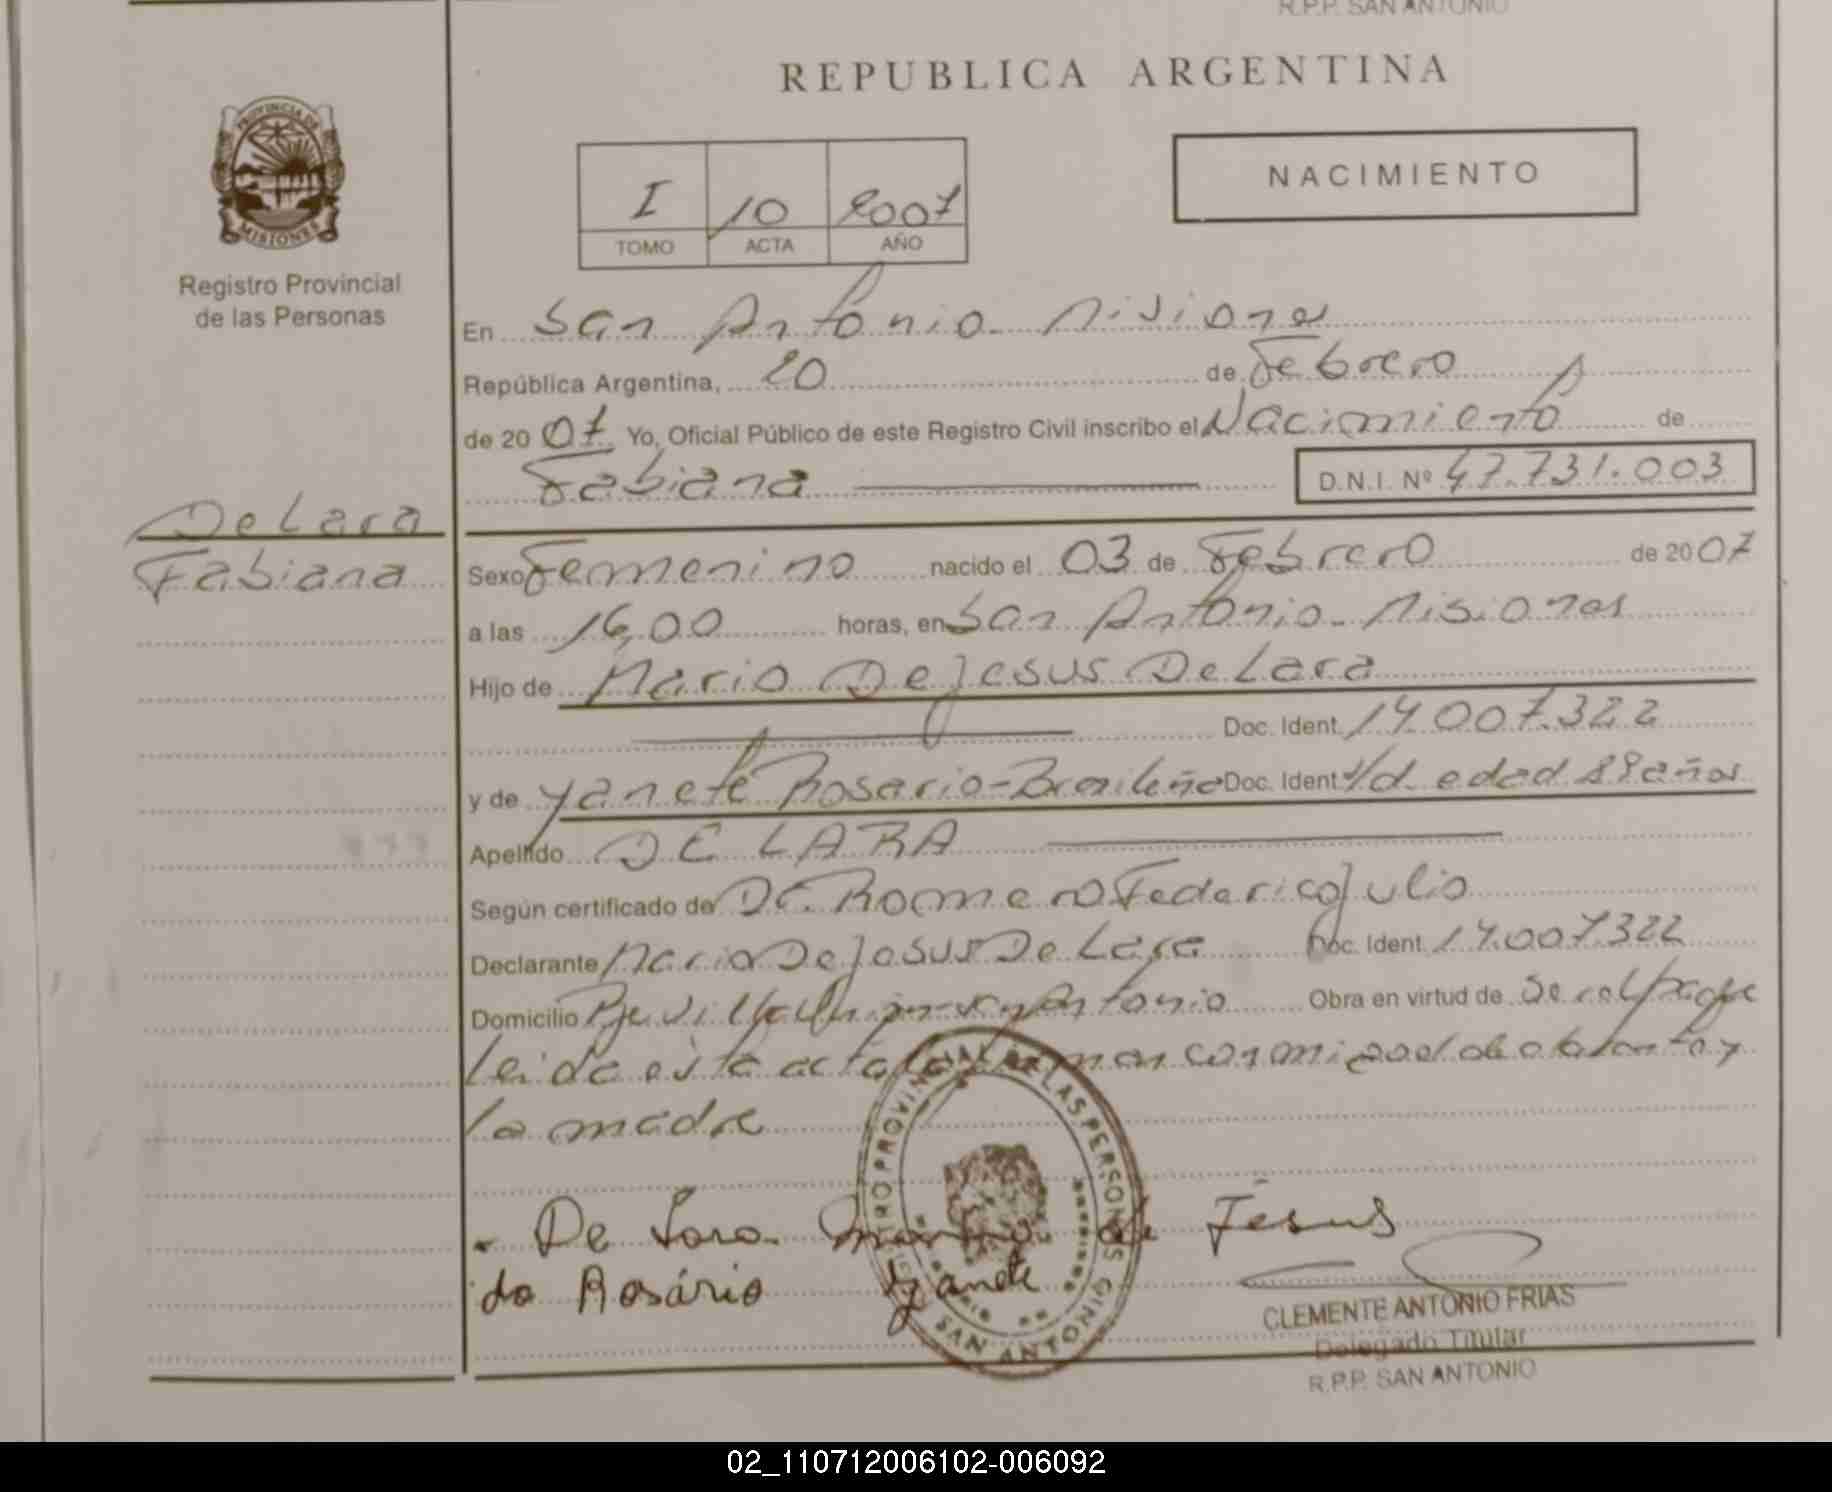 R.P.P. SAN ANTONIO
REPUBLICA ARGENTINA
PROVINCIA DE
MISIONES
Registro Provincial
de las Personas
I 10 2007
TOMO ACTA AÑO
NACIMIENTO
En San Antonio - Misiones
República Argentina, 20 de Febrero
de 2007. Yo, Oficial Público de este Registro Civil inscribo el Nacimiento de
Fabiana D.N.I. Nº 47.731.003
De Lara
Fabiana
Sexo Femenino nacido el 03 de Febrero de 2007
a las 16,00 horas, en San Antonio - Misiones
Hijo de Mario De Jesus De Lara
Doc. Ident. 14.007.322
y de Yanete Rosario - Brasileña Doc. Ident. s/d edad años
Apellido DE LARA
Según certificado de DR. Romero Federico Julio
Declarante Mario De Jesus De Lara Doc. Ident. 14.007322
Domicilio Antonio Obra en virtud de
Leida esta acta conmigo el declarante y
la madre
De Lara de Jesus
do Rosário Yanete
REGISTRO PROVINCIAL DE LAS PERSONAS
SAN ANTONIO
CLEMENTE ANTONIO FRIAS
Delegado Titular
R.P.P. SAN ANTONIO
02_110712006102-006092